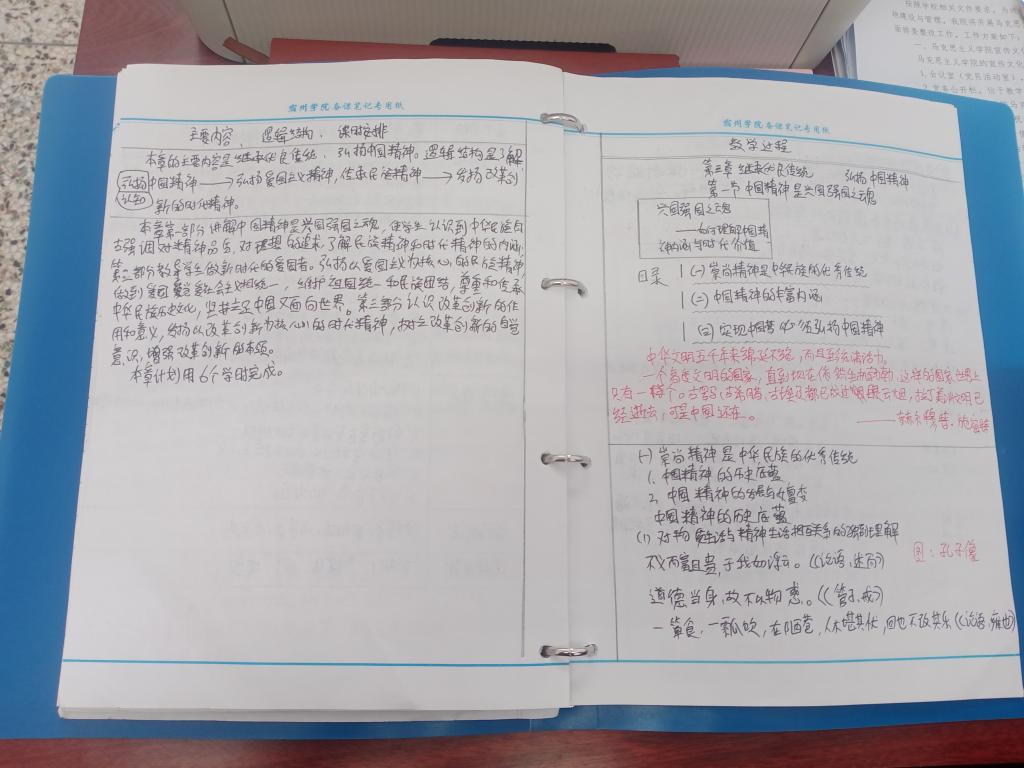 宿州学院备课笔记专用纸
主要内容、逻辑结构、课时安排
本章的主要内容是继承优良传统、弘扬中国精神。逻辑结构是了解
弘扬中国精神 → 弘扬爱国主义精神,传承民族精神 → 发扬改革创
认知 新的时代精神。
本章第一部分讲解中国精神是兴国强国之魂,使学生认识到中华民族自
古强调对精神品质,对理想的追求,了解民族精神和时代精神的内涵,
第二部分教导学生做新时代的爱国者。弘扬以爱国主义为核心的民族精神,
做到爱国爱党爱社会主义相统一,维护祖国统一和民族团结,尊重和传承
中华民族历史文化,坚持立足中国又面向世界。第三部分认识改革创新的作
用和意义,发扬以改革创新为核心的时代精神,树立改革创新的自觉
意识,增强改革创新的本领。
本章计划用6个学时完成。
宿州学院备课笔记专用纸
教学过程
第三章 继承优良传统 弘扬中国精神
第一节 中国精神是兴国强国之魂
兴国强国之魂
——如何理解中国精
神的内涵与时代价值
目录 (一)崇尚精神是中华民族的优秀传统
(二)中国精神的丰富内涵
(三)实现中国梦必须弘扬中国精神
中华文明五千年来绵延不绝,而且至今充满活力。
一个高度文明的国家,直到现在依然生机勃勃,这样的国家世界上
只有一个。古罗马、古希腊、古埃及都已成过眼云烟,
经逝去,可是中国还在。
(一)崇尚精神是中华民族的优秀传统
1、中国精神的历史底蕴
2、中国精神的发展与嬗变
中国精神的历史底蕴
(1)对物质生活与精神生活相互关系的独到理解
不义而富且贵,于我如浮云。(《论语·述而》) 图:孔子像
道德当身,故不以物惑。(《管子·戒》)
一箪食,一瓢饮,在陋巷,人不堪其忧,回也不改其乐(《论语·雍也》)